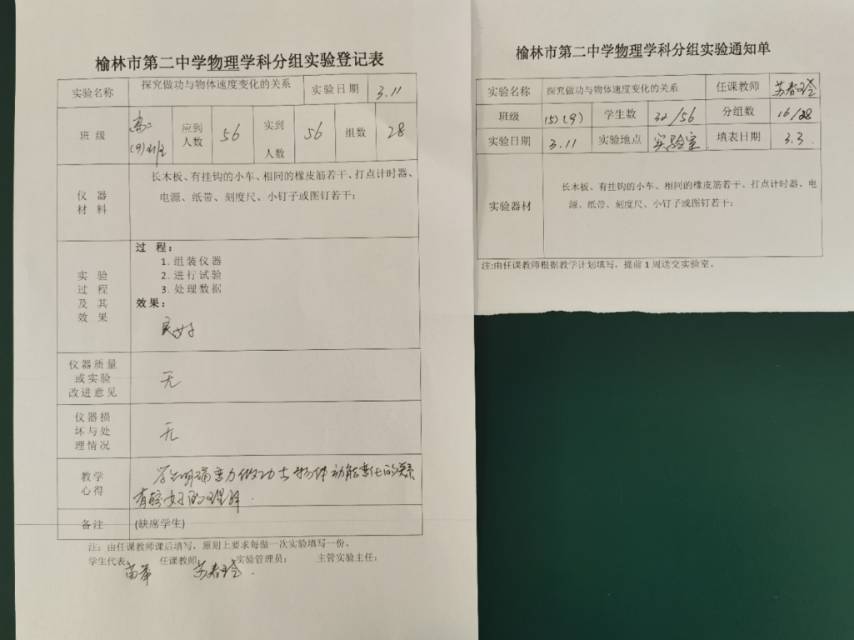 榆林市第二中学物理学科分组实验登记表
实验名称 探究做功与物体速度变化的关系 实验日期 3.11
班级 高二(9)班 应到人数 56 实到人数 56 组数 28
仪器材料 长木板、有挂钩的小车、相同的橡皮筋若干、打点计时器、
电源、纸带、刻度尺、小钉子或图钉若干;
实验过程及其效果
过程:
1. 组装仪器
2. 进行试验
3. 处理数据
效果:
良好
仪器质量或实验改进意见 无
仪器损坏与处理情况 无
教学心得 学生明确变力做功与物体动能变化的关系
有较好的理解.
备注 (缺席学生)
注:由任课教师课后填写,原则上要求每做一次实验填写一份。
学生代表: 任课教师: 苏春玲. 实验管理员: 主管实验主任:
榆林市第二中学物理学科分组实验通知单
实验名称 探究做功与物体速度变化的关系 任课教师 苏春玲
班级 (5)(9) 学生数 32/56 分组数 16/28
实验日期 3.11 实验地点 实验室 填表日期 3.3
实验器材 长木板、有挂钩的小车、相同的橡皮筋若干、打点计时器、电
源、纸带、刻度尺、小钉子或图钉若干;
注:由任课教师根据教学计划填写,提前1周送交实验室。